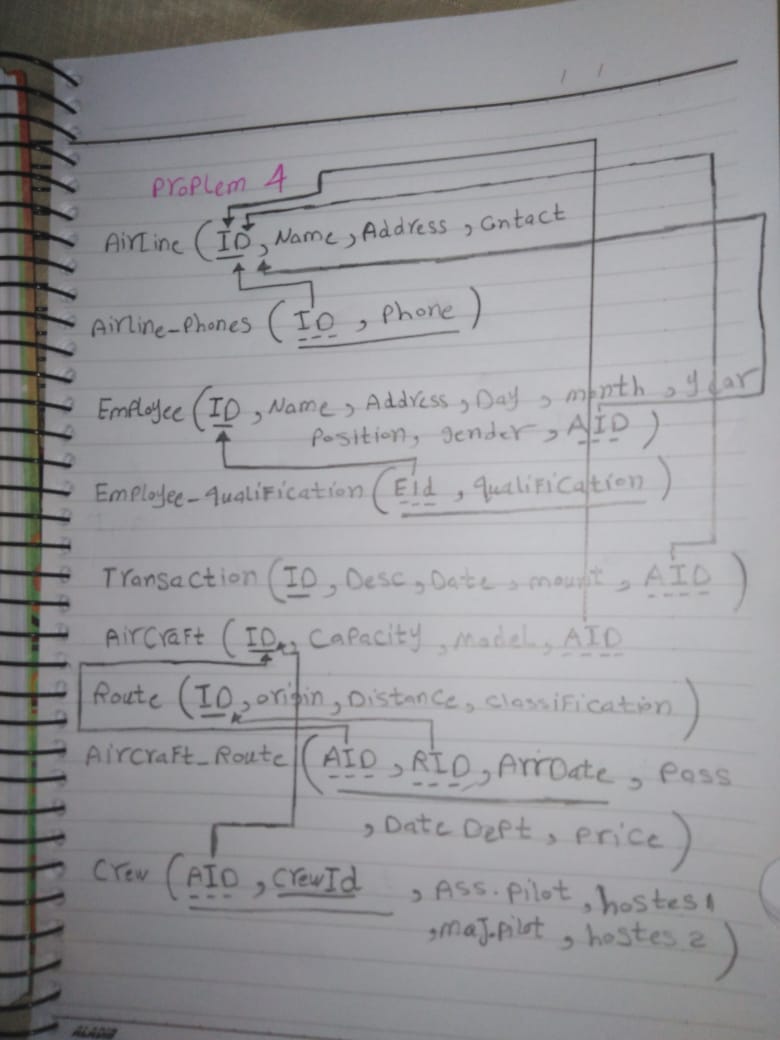 Proplem 4
Airline (ID, Name, Address, Cntact
Airline_Phones (ID, Phone)
Employee (ID, Name, Address, Day, month, year
Position, gender, AID)
Employee_qualification (Eid, qualification)
Transaction (ID, Desc, Date, mount, AID)
AirCraft (ID, Capacity, model, AID
Route (ID, origin, Distance, classification)
Aircraft_Route (AID, RID, ArrDate, Pass
, Date Dept, Price)
Crew (AID, CrewId, Ass.pilot, hostes1
, maj.pilot, hostes 2)
ALADIB